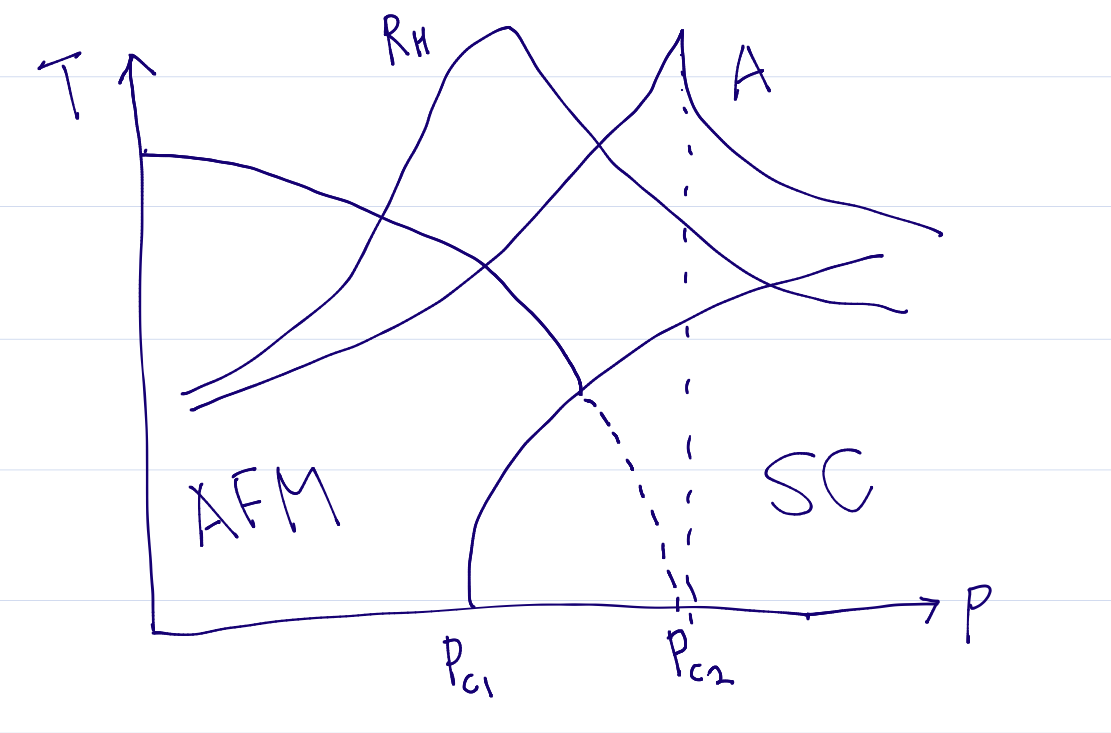 R_H
T
A
AFM
SC
P
P_C1
P_C2